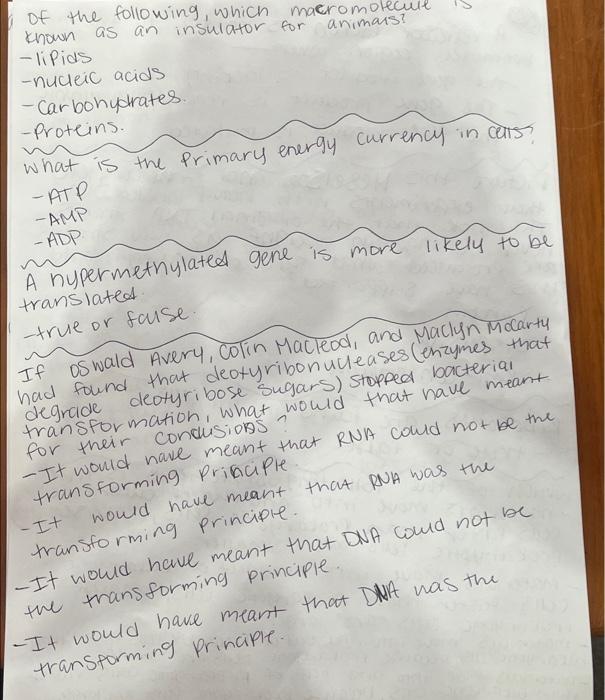 Of the following, which macromolecule is
known as an insulator for animals?
-lipids
-nucleic acids
-Carbohydrates.
-Proteins.
What is the Primary energy currency in cells?
-ATP
-AMP
-ADP
A hypermethylated gene is more likely to be
translated.
-true or false.
If Oswald Avery, Colin Macleod, and Maclyn McCarty
had found that deoxyribonucleases (enzymes that
degrade deoxyribose sugars) stopped bacterial
transformation, what would that have meant
for their conclusions?
-It would have meant that RNA could not be the
transforming Principle.
-It would have meant that RNA was the
transforming principle.
-It would have meant that DNA could not be
the transforming principle.
-It would have meant that DNA was the
transforming principle.